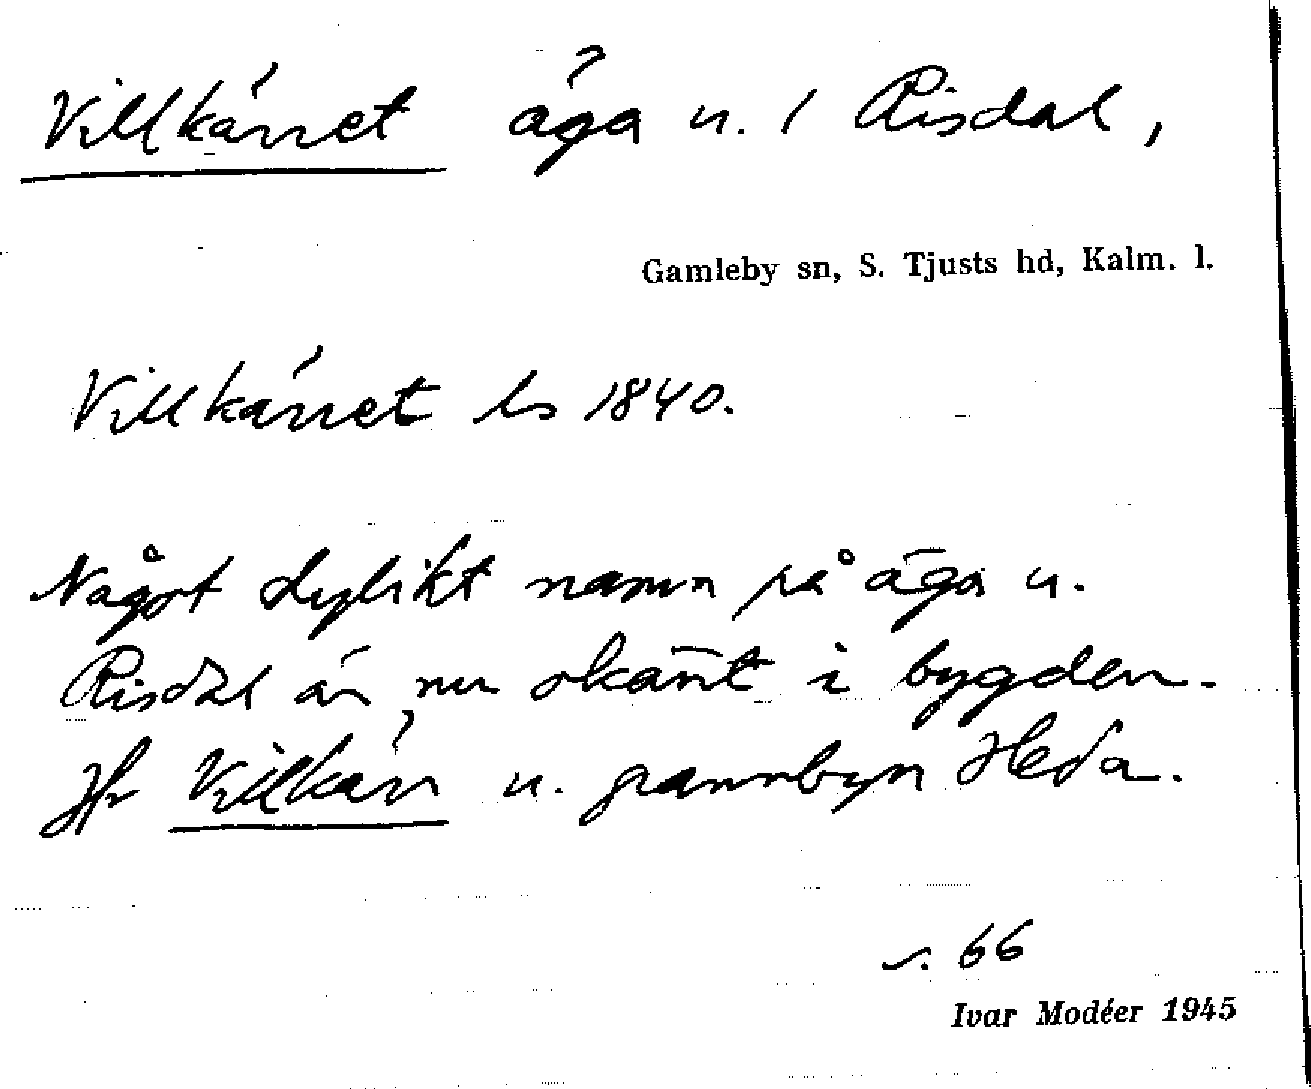 Villkärret äga u. 1 Risdal,
Gamleby sn, S. Tjusts hd, Kalm. l.
Villkärret ls 1840.
Något dylikt namn på äga u.
Risdal är nu okänt i bygden.
Jfr Villkärr u. grannbyn Heda.
s. 66
Ivar Modéer 1945